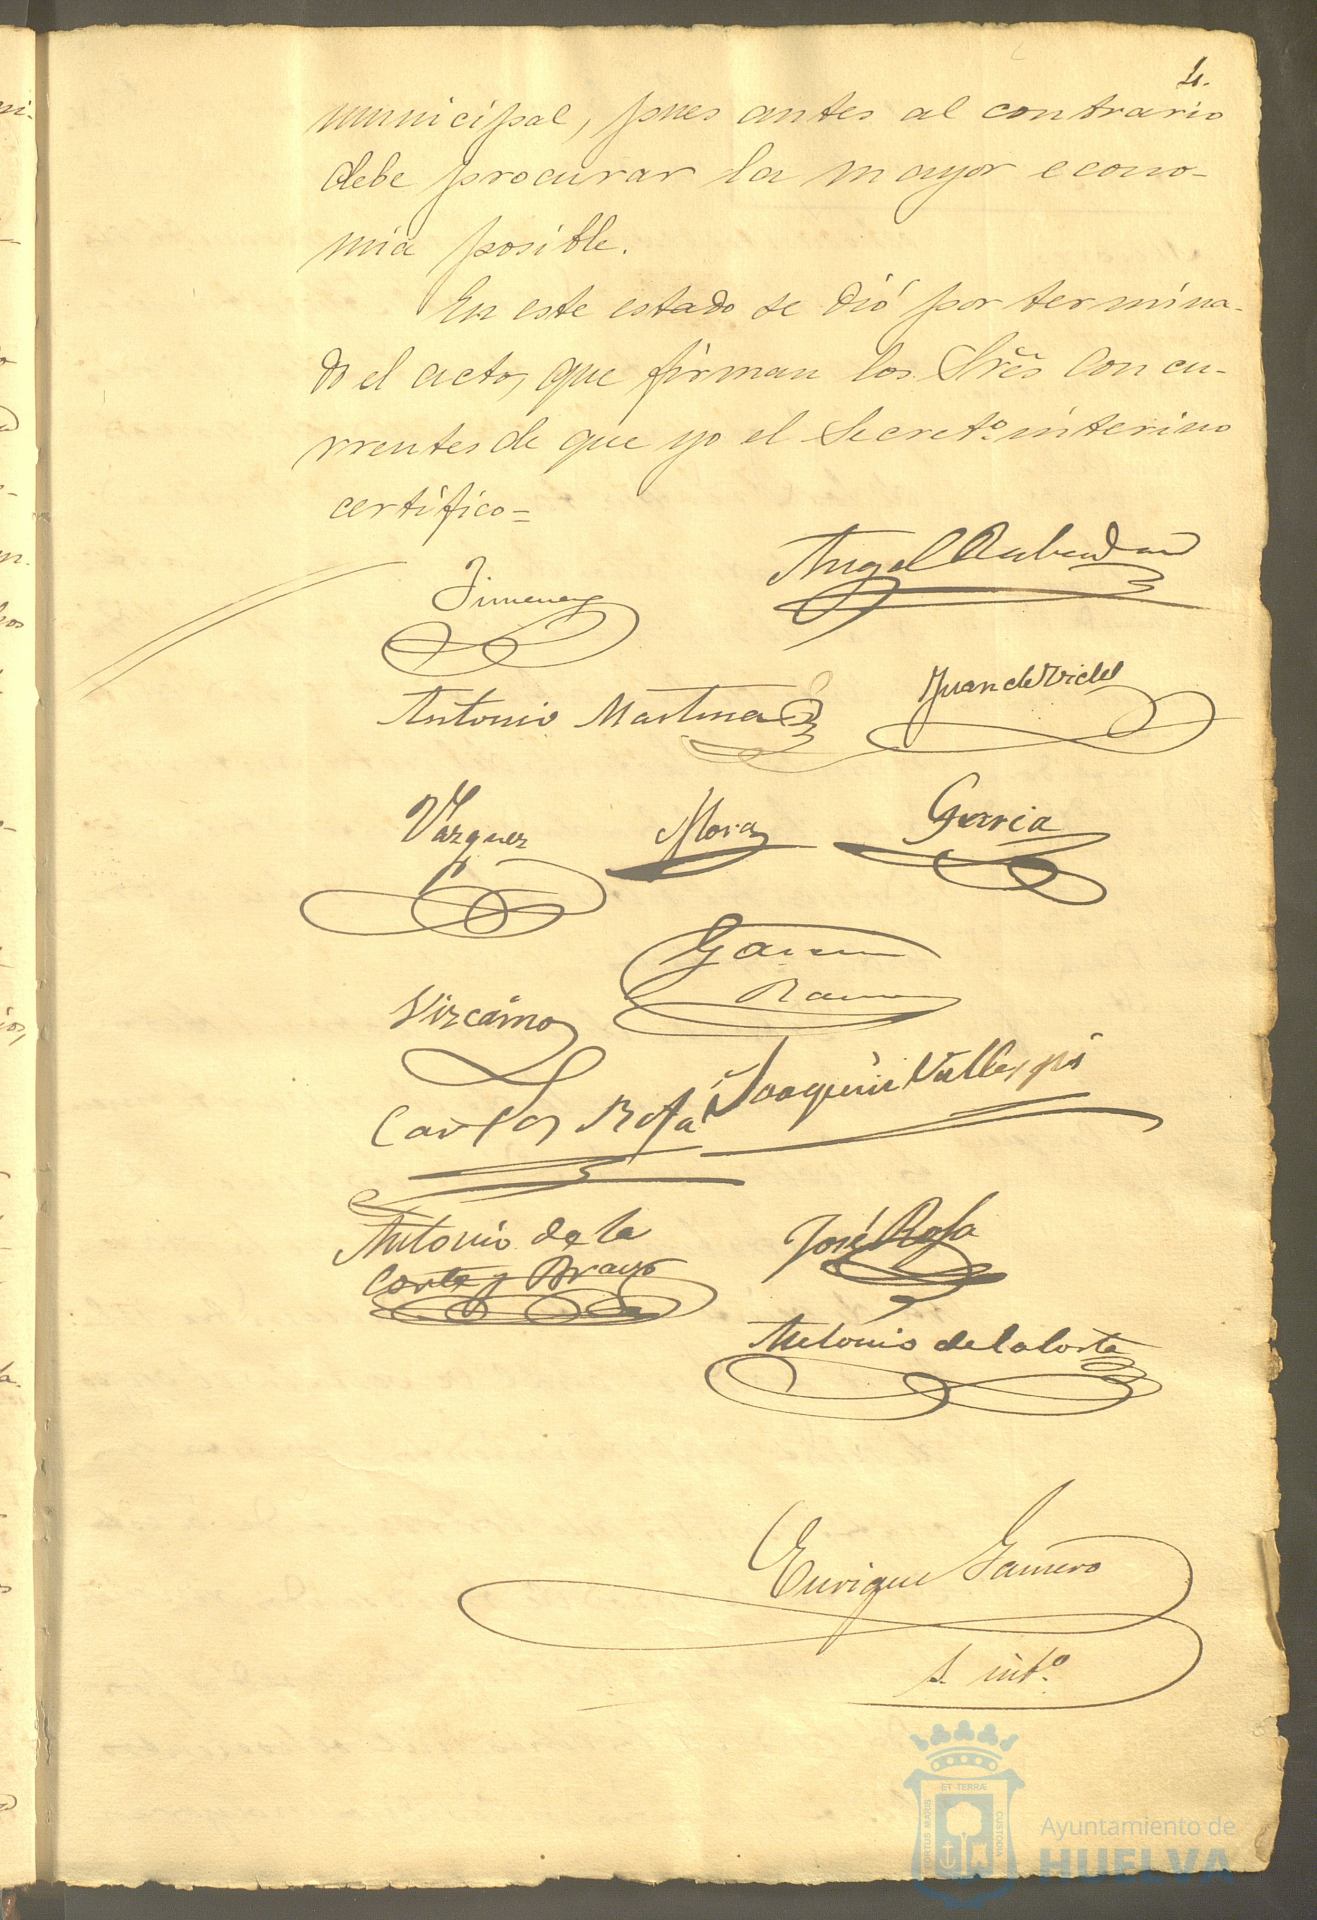 4.
municipal, pues antes al contrario
debe procurar la mayor econo-
mia posible.
En este estado se dió por termina-
do el acto, que firman los Sres concu-
rrentes de que yo el Secretº interino
certifico=
Jimenez
Angel Rabadan
Antonio Martinez
Juan de Vides
Vazquez
Mora
Garcia
Garcia
Ramos
Vizcaino
Carlos Rofa
Joaquin Vallespis
Antonio de la
Corte y Bravo
José Rofa
Antonio de la Corte
Enrique Gamero
S. intº.
ET TERRÆ
PORTUS MARIS
CUSTODIA
Ayuntamiento de
HUELVA